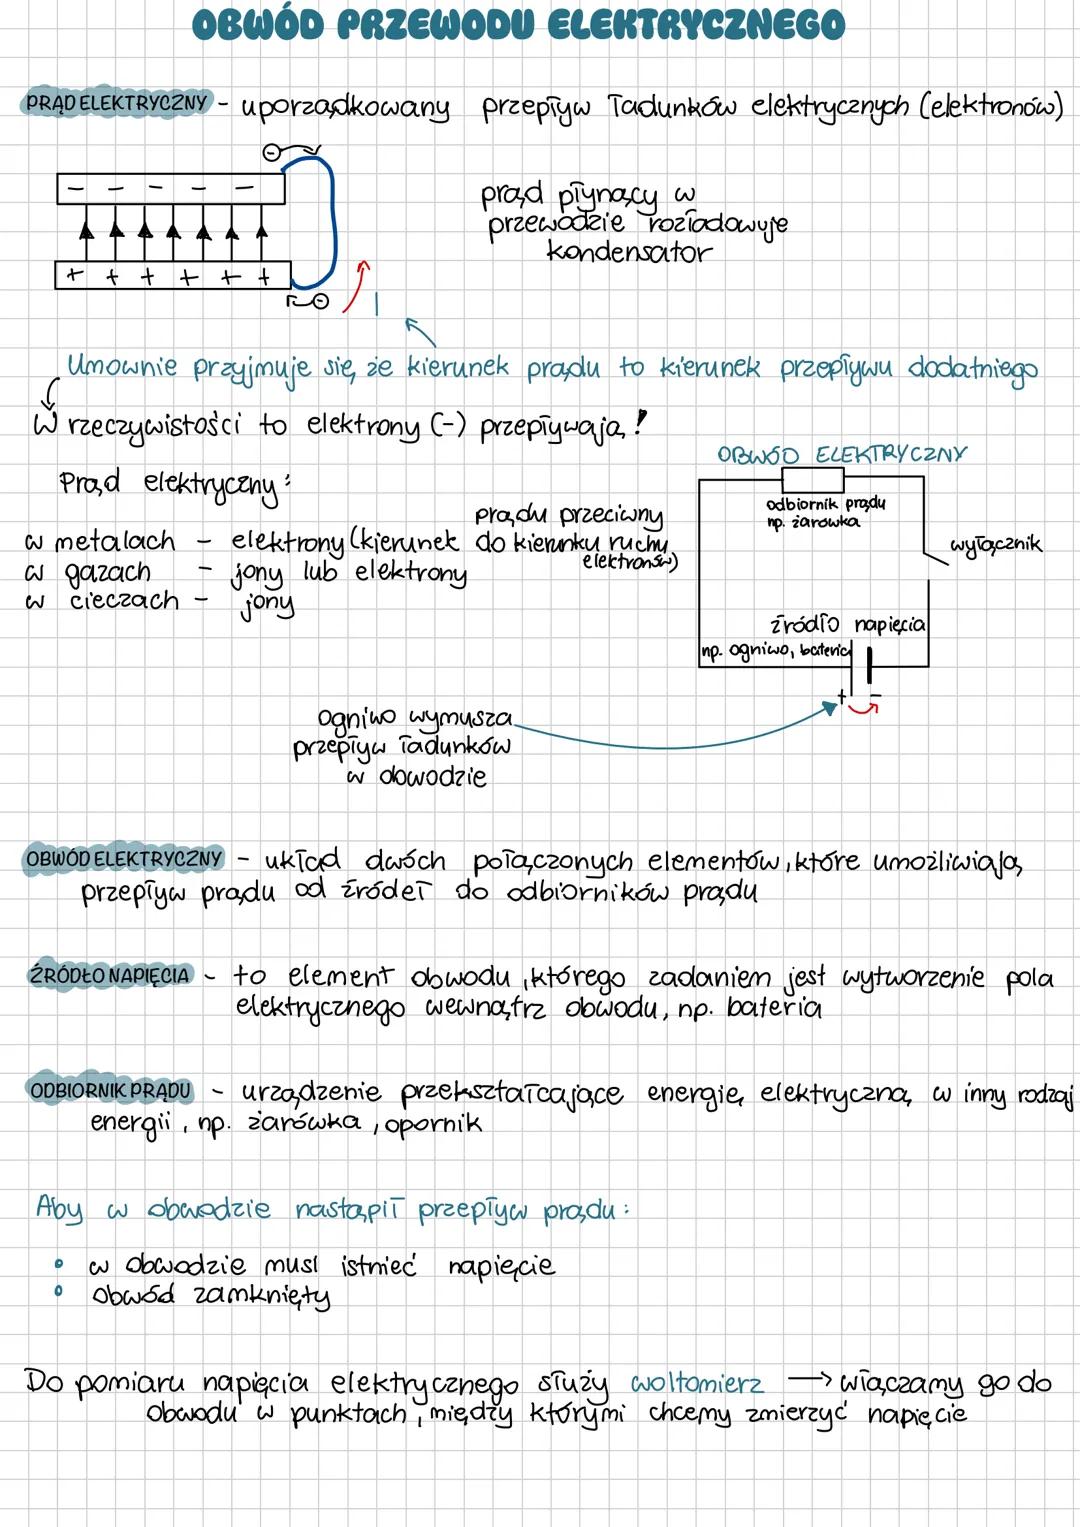 OBWÓD PRZEWODU ELEKTRYCZNEGO
PRĄD ELEKTRYCZNY - uporządkowany przepływ ładunków elektrycznych (elektronów)
prąd płynący w
przewodzie rozładowuje
kondensator
- - - - -
+ + + + + +
I
Umownie przyjmuje się, że kierunek prądu to kierunek przepływu dodatniego
W rzeczywistości to elektrony (-) przepływają!
Prąd elektryczny:
w metalach - elektrony (kierunek prądu przeciwny do kierunku ruchu elektronów)
w gazach - jony lub elektrony
w cieczach - jony
OBWÓD ELEKTRYCZNY
odbiornik prądu
np. żarówka
wyłącznik
źródło napięcia
np. ogniwo, bateria
+ -
Ogniwo wymusza
przepływ ładunków
w obwodzie
OBWÓD ELEKTRYCZNY - układ dwóch połączonych elementów, które umożliwiają
przepływ prądu od źródeł do odbiorników prądu
ŹRÓDŁO NAPIĘCIA - to element obwodu, którego zadaniem jest wytworzenie pola
elektrycznego wewnątrz obwodu, np. bateria
ODBIORNIK PRĄDU - urządzenie przekształcające energię elektryczną w inny rodzaj
energii, np. żarówka, opornik
Aby w obwodzie nastąpił przepływ prądu:
• w obwodzie musi istnieć napięcie
• obwód zamknięty
Do pomiaru napięcia elektrycznego służy woltomierz → włączamy go do
obwodu w punktach, między którymi chcemy zmierzyć napięcie